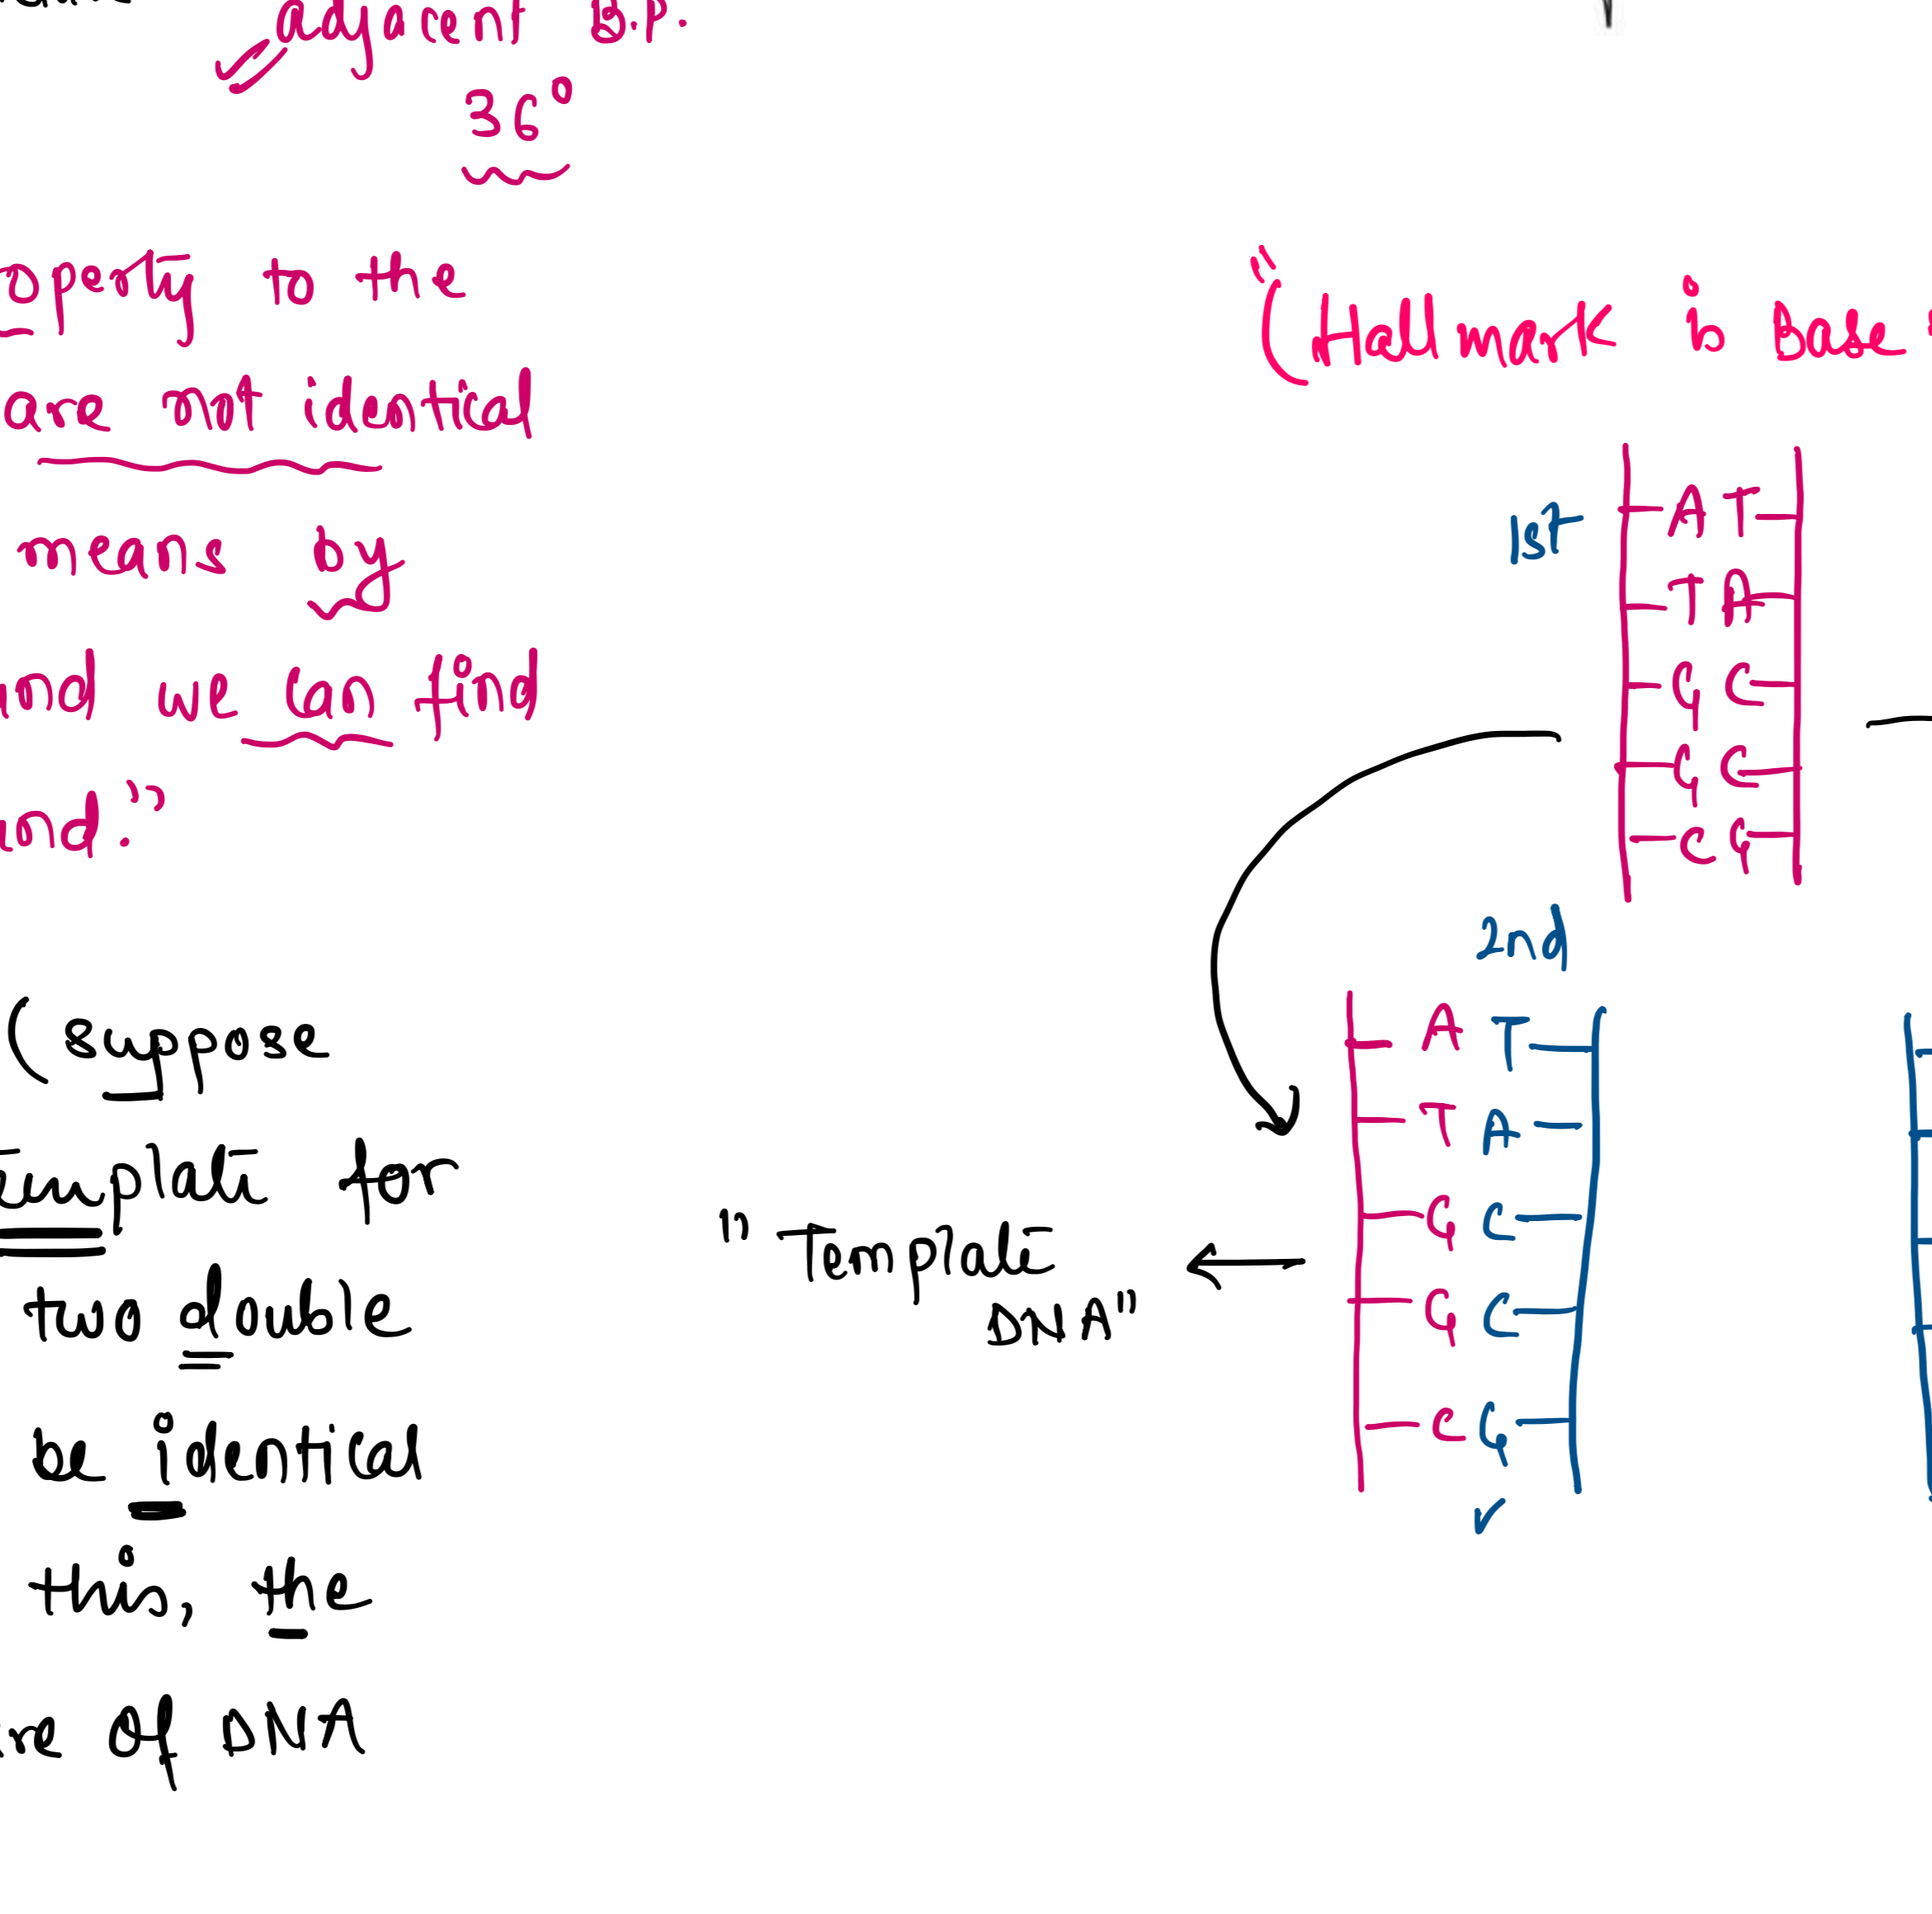 adjacent B.P.
36°
operty to the
are not identical
means by
and we can find
and."
(suppose
Template for
two double
be identical
this, the
re of DNA
"(Hallmark is Base
1st
A T
T A
G C
G C
C G
2nd
A T
T A
G C
G C
C G
"Template
DNA"